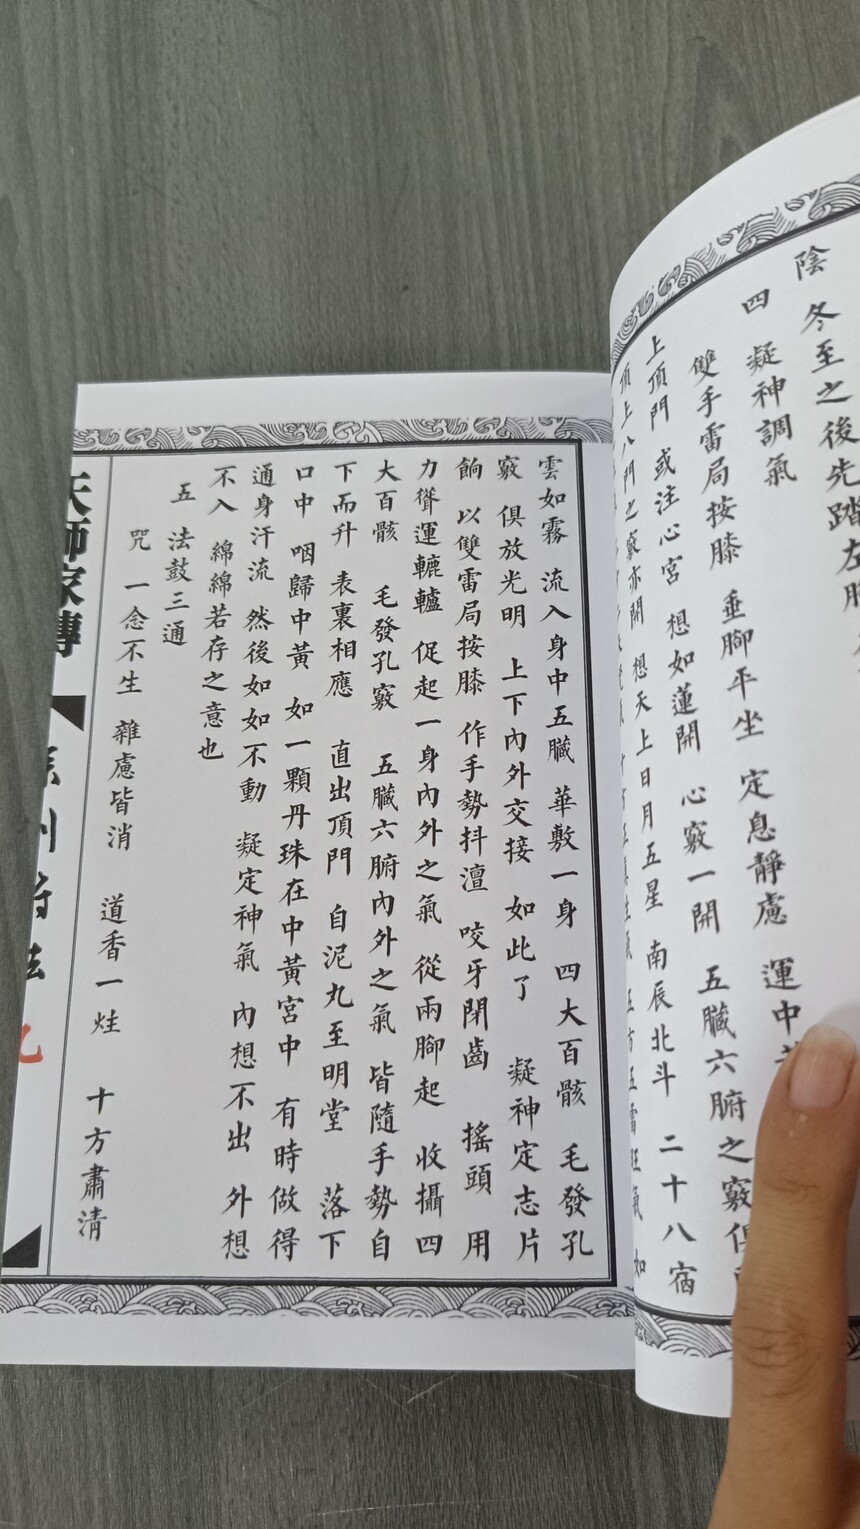 陰
冬至之後先踏左腳
四 凝神調氣
雙手雷局按膝 垂腳平坐 定息靜慮 運中
上頂門 或注心宮 想如蓮開 心竅一開 五臟六腑之竅俱
頂上八門之竅亦開 想天上日月五星 南辰北斗 二十八宿
五方五雷旺氣 如
雲如霧 流入身中五臟 華敷一身 四大百骸 毛發孔
竅 俱放光明 上下內外交接 如此了 凝神定志片
餉 以雙雷局按膝 作手勢抖澶 咬牙閉齒 搖頭 用
力聳運轆轤 促起一身內外之氣 從兩腳起 收攝四
大百骸 毛發孔竅 五臟六腑內外之氣 皆隨手勢自
下而升 表裏相應 直出頂門 自泥丸至明堂 落下
口中 咽歸中黃 如一顆丹珠在中黃宮中 有時做得
通身汗流 然後如如不動 凝定神氣 內想不出 外想
不入 綿綿若存之意也
五 法鼓三通
咒 一念不生 雜慮皆消 道香一炷 十方肅清
天師家傳